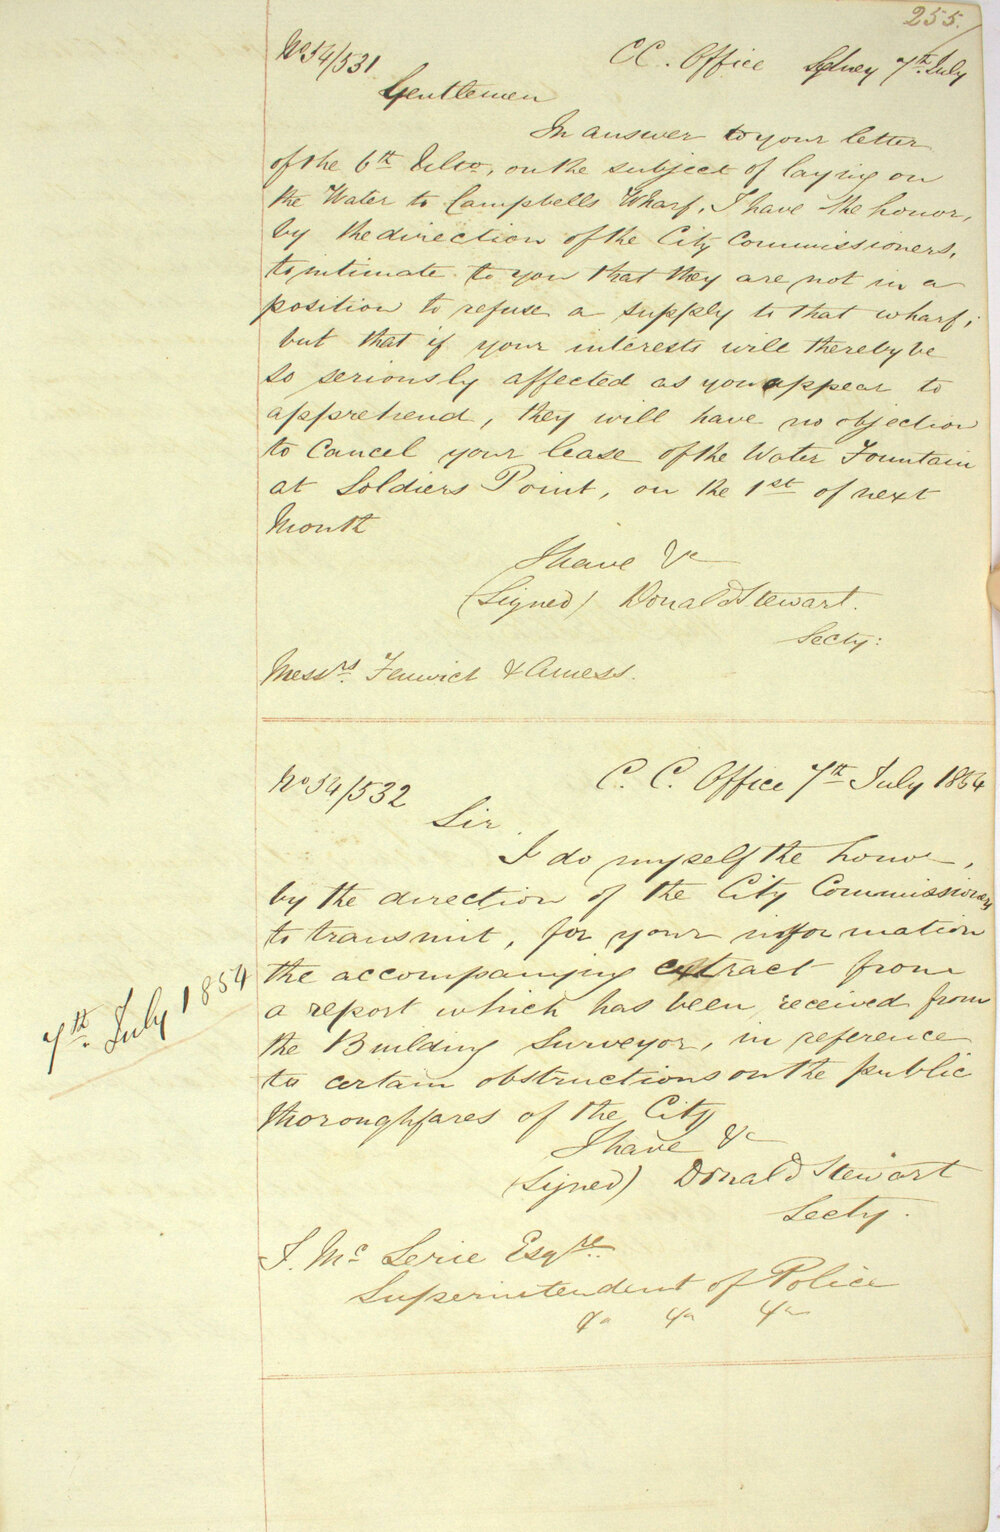 255.
No 54/531 C.C. Office Sydney 7th July
Gentlemen
In answer to your letter
of the 6th Ulto, on the subject of laying on
the Water to Campbells Wharf, I have the honor,
by the direction of the City Commissioners,
to intimate to you that they are not in a
position to refuse a supply to that wharf;
but that if your interests will thereby be
so seriously affected as you appear to
apprehend, they will have no objection
to Cancel your lease of the Water Fountain
at Soldiers Point, on the 1st of next
Month
I have &c
(Signed) Donald Stewart.
Secty:
Messrs. Fenwick & Amess.
No 54/532 C. C. Office 7th July 1854
Sir
I do myself the honor,
by the direction of the City Commissioners
to transmit, for your information
the accompanying extract from
a report which has been received from
the Building Surveyor, in reference
to certain obstructions on the public
thoroughfares of the City
I have &c
(Signed) Donald Stewart
Secty.
J. Mc Lerie Esqre.
Superintendent of Police
&c &c &c
7th. July 1854